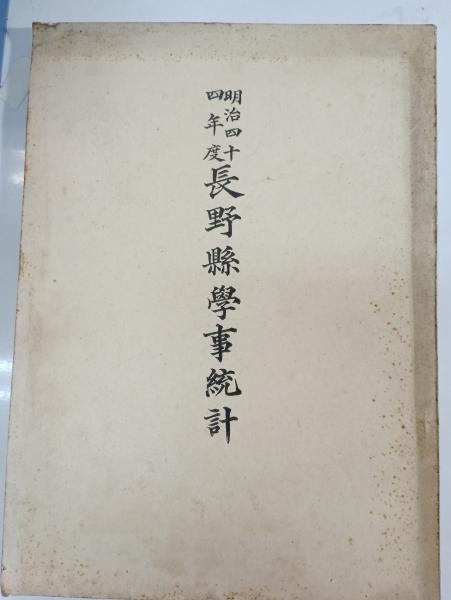 明治四十
四年度
長野縣學事統計